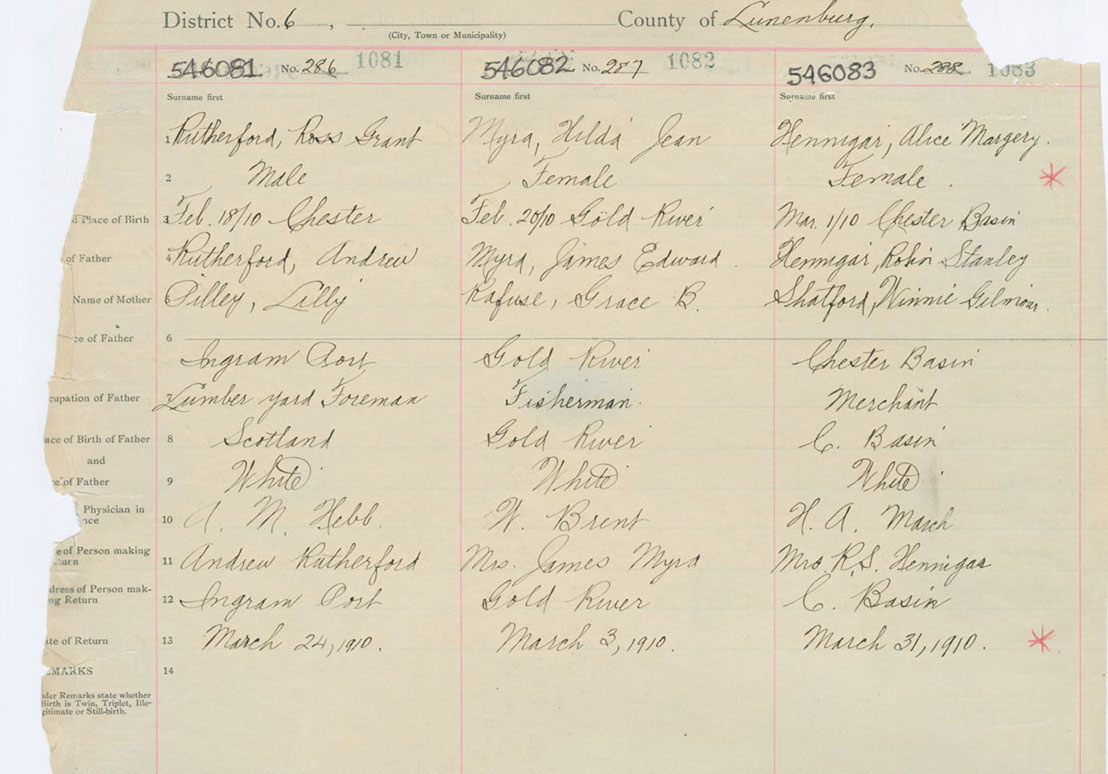 District No. 6 , County of Lunenburg,
(City, Town or Municipality)
546081 No. 286 1081 546082 No. 287 1082 546083 No. 288 1083
Surname first Surname first Surname first
1 Rutherford, Ross Grant Myra, Hilda Jean Hennigar, Alice Margery.
2 Male Female Female .
Place of Birth 3 Feb. 18/10 Chester Feb. 20/10 Gold River Mar. 1/10 Chester Basin
of Father 4 Rutherford, Andrew Myra, James Edward . Hennigar, Robin Stanley
Name of Mother Pilley, Lilly Rafuse, Grace B. Shatford, Winnie Gilmour.
ce of Father 6 Ingram Port Gold River Chester Basin
cupation of Father Lumber yard Foreman Fisherman. Merchant
ace of Birth of Father 8 Scotland Gold River C. Basin
and
ce of Father 9 White White White
Physician in
nce 10 A. M. Hebb. W. Brent H. A. March
e of Person making
turn 11 Andrew Rutherford Mrs. James Myra Mrs R. S. Hennigar
dress of Person mak-
ng Return 12 Ingram Port Gold River C. Basin
ate of Return 13 March 24, 1910. March 3, 1910. March 31, 1910.
EMARKS 14
nder Remarks state whether
Birth is Twin, Triplet, Ille-
gitimate or Still-birth.